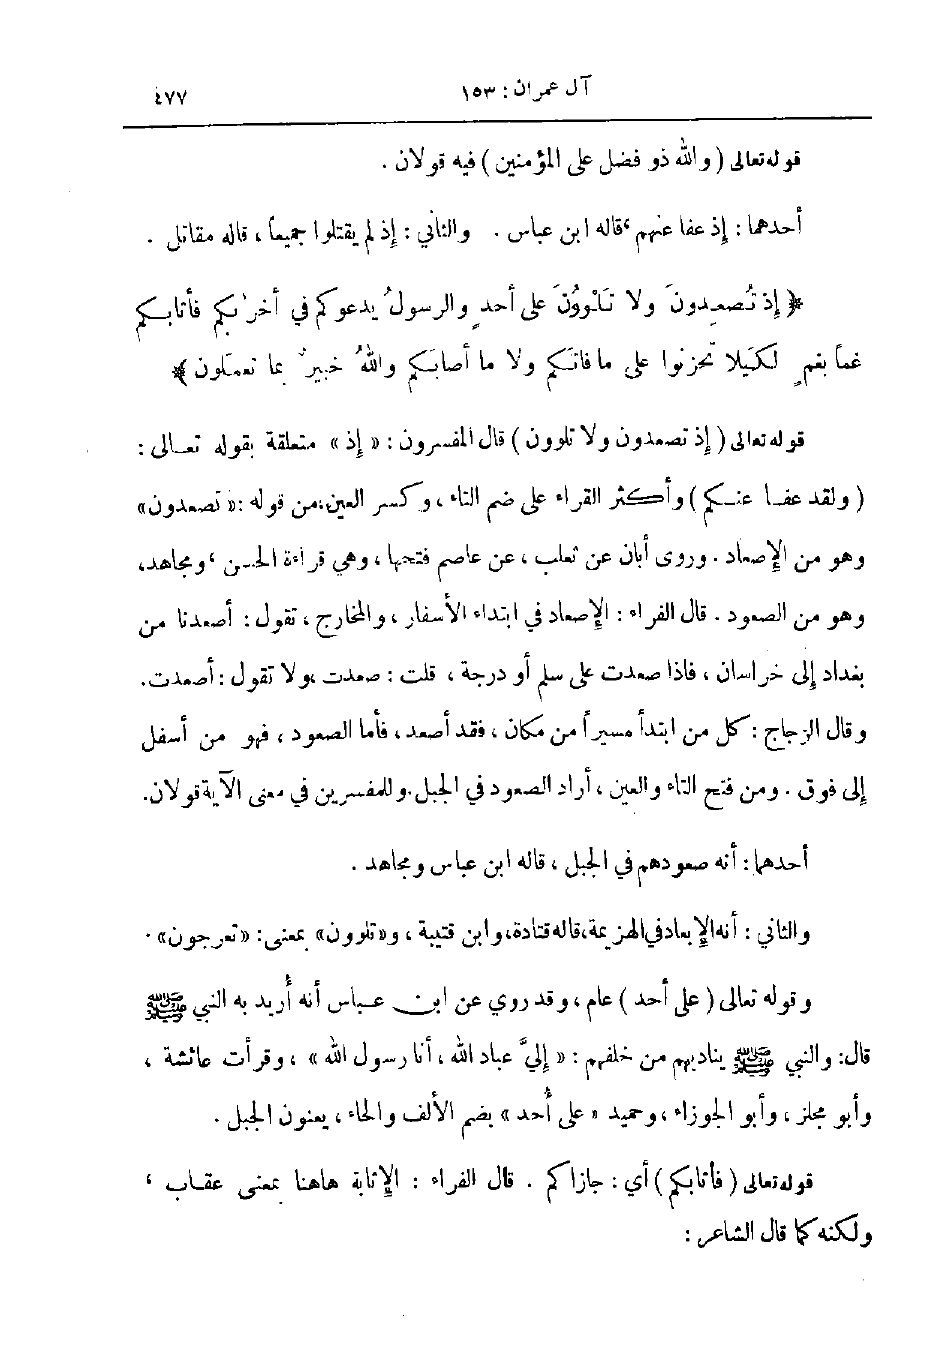 آل عمران : ١٥٣
٤٧٧
قوله تعالى ( والله ذو فضل على المؤمنين ) فيه قولان .
أحدهما : إذ عفا عنهم ، قاله ابن عباس . والثاني : إذ لم يقتلوا جميعاً ، قاله مقاتل .
﴿ إذ تُصعِدونَ ولا تَلْوُونَ على أحدٍ والرسولُ يدعوكم في أخراكم فأثابكم
غماً بغمٍ لكَيلا تحزنوا على ما فاتَكم ولا ما أصابَكم واللهُ خبيرٌ بما تعملون ﴾
قوله تعالى ( إذ تصعدون ولا تلوون ) قال المفسرون : « إذ » متعلقة بقوله تعالى :
( ولقد عفا عنكم ) وأكثر القراء على ضم التاء ، وكسر العين ، من قوله : « تصعدون »
وهو من الإصعاد . وروى أبان عن ثعلب ، عن عاصم فتحها ، وهي قراءة الحسن ، ومجاهد ،
وهو من الصعود . قال الفراء : الإصعاد في ابتداء الأسفار ، والمخارج ، تقول : أصعدنا من
بغداد إلى خراسان ، فاذا صعدت على سلم أو درجة ، قلت : صعدت ، ولا تقول : أصعدت .
وقال الزجاج : كل من ابتدأ مسيراً من مكان ، فقد أصعد ، فأما الصعود ، فهو من أسفل
إلى فوق . ومن فتح التاء والعين ، أراد الصعود في الجبل . وللمفسرين في معنى الآية قولان .
أحدهما : أنه صعودهم في الجبل ، قاله ابن عباس ومجاهد .
والثاني : أنه الإبعاد في الهزيمة ، قاله قتادة ، وابن قتيبة ، و« تلوون » بمعنى : « تعرجون » .
وقوله تعالى ( على أحد ) عام ، وقد روي عن ابن عباس أنه أُريد به النبي ﷺ
قال : والنبي ﷺ يناديهم من خلفهم : « إليَّ عباد الله ، أنا رسول الله » ، وقرأت عائشة ،
وأبو مجلز ، وأبو الجوزاء ، وحميد « على أُحد » بضم الألف والحاء ، يعنون الجبل .
قوله تعالى ( فأثابكم ) أي : جازاكم . قال الفراء : الإثابة هاهنا بمعنى عقاب ،
ولكنه كما قال الشاعر :